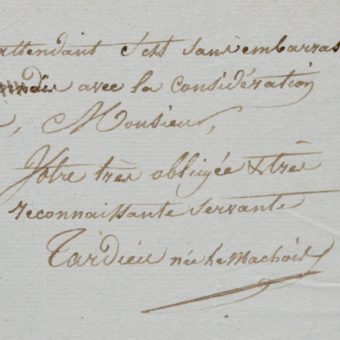 attendant c'est sans embarras
avec la considération
Monsieur,
Votre très obligée & très
reconnaissante servante
Tardieu née